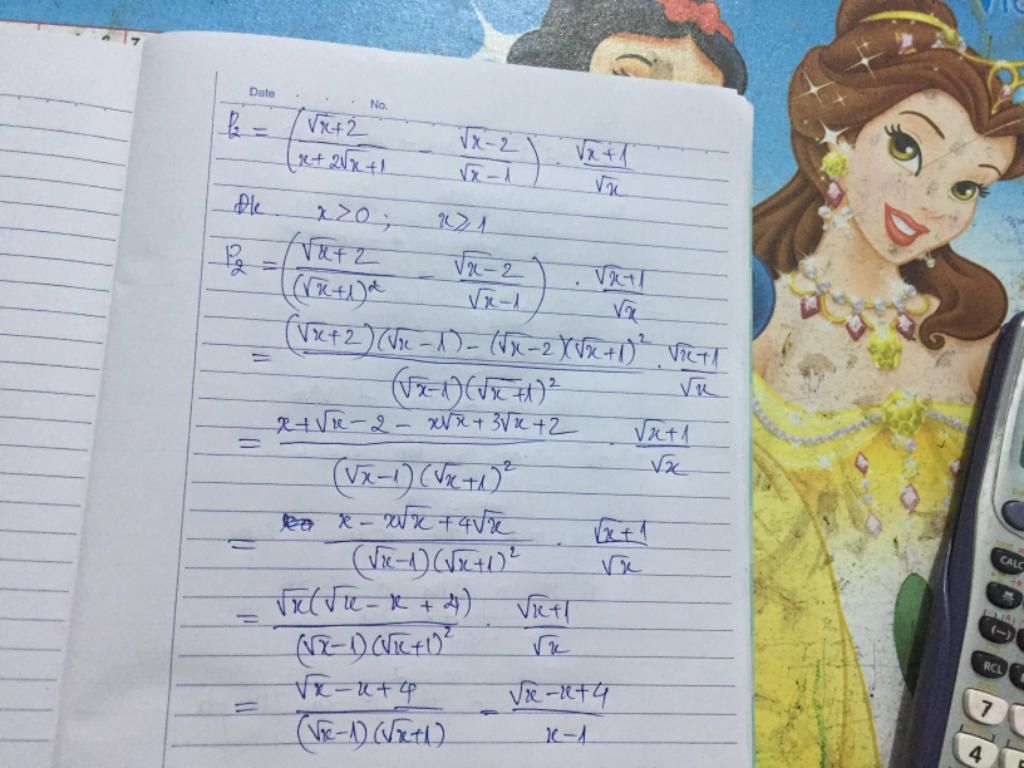 Date No.
P₂ = ((√x+2)/(x+2√x+1) - (√x-2)/(√x-1)) . (√x+1)/√x
Đk x>0; x⩾1
P₂ = ((√x+2)/(√x+1)² - (√x-2)/(√x-1)) . (√x+1)/√x
= ((√x+2)(√x-1)-(√x-2)(√x+1)²)/((√x-1)(√x+1)²) . (√x+1)/√x
= (x+√x-2-x√x+3√x+2)/((√x-1)(√x+1)²) . (√x+1)/√x
= (x-x√x+4√x)/((√x-1)(√x+1)²) . (√x+1)/√x
= (√x(√x-x+4))/((√x-1)(√x+1)²) . (√x+1)/√x
= (√x-x+4)/((√x-1)(√x+1)) = (√x-x+4)/(x-1)
CALC
(-)
RCL
7
4